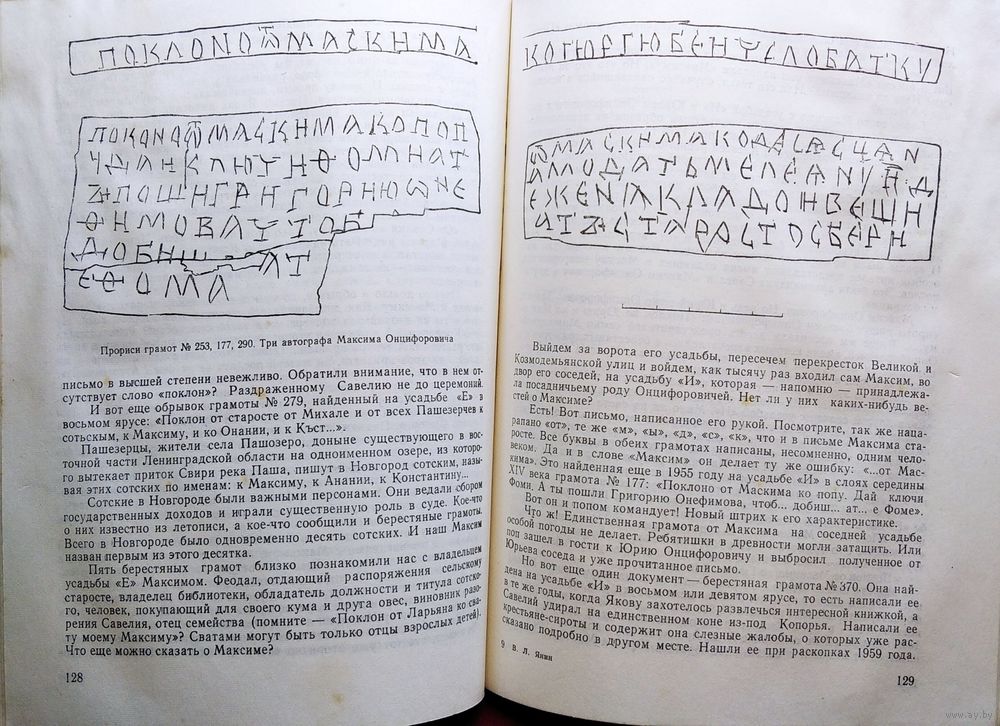 ПОКЛОНОѾМАСКНМА
ПОКОНОѾМАСКНМАКОПОП
ѲНМОВАУТОБ
ЕѲОМА
Прориси грамот № 253, 177, 290. Три автографа Максима Онцифоровича
письмо в высшей степени невежливо. Обратили внимание, что в нем от-
сутствует слово «поклон»? Раздраженному Савелию не до церемоний.
И вот еще обрывок грамоты № 279, найденный на усадьбе «Е» в
восьмом ярусе: «Поклон от старосте от Михале и от всех Пашезерчев к
сотьским, к Максиму, и ко Онании, и к Къст...».
Пашезерцы, жители села Пашозеро, доныне существующего в вос-
точной части Ленинградской области на одноименном озере, из которо-
го вытекает приток Свири река Паша, пишут в Новгород сотским, назы-
вая этих сотских по именам: к Максиму, к Анании, к Константину...
Сотские в Новгороде были важными персонами. Они ведали сбором
государственных доходов и играли существенную роль в суде. Кое-что
о них известно из летописи, а кое-что сообщили и берестяные грамоты.
Всего в Новгороде было одновременно десять сотских. И наш Максим
назван первым из этого десятка.
Пять берестяных грамот близко познакомили нас с владельцем
усадьбы «Е» Максимом. Феодал, отдающий распоряжения сельскому
старосте, владелец библиотеки, обладатель должности и титула сотско-
го, человек, покупающий для своего кума и друга овес, виновник разо-
рения Савелия, отец семейства (помните — «Поклон от Ларьяна ко сва-
ту моему Максиму»? Сватами могут быть только отцы взрослых детей).
Что еще можно сказать о Максиме?
128
КОГЮРГЮБЕНЧЕЛОБАТКУ
Выйдем за ворота его усадьбы, пересечем перекресток Великой и
Козмодемьянской улиц и войдем, как тысячу раз входил сам Максим, во
двор его соседей, на усадьбу «И», которая — напомню — принадлежа-
ла посадничьему роду Онцифоровичей. Нет ли у них каких-нибудь ве-
стей о Максиме?
Есть! Вот письмо, написанное его рукой. Посмотрите, так же наца-
рапано «от», те же «м», «ы», «д», «с», «к», что и в письме Максима ста-
росте. Все буквы в обеих грамотах написаны, несомненно, одним чело-
веком. Да и в слове «Максим» он делает ту же ошибку: «...от Мас-
кима». Это найденная еще в 1955 году на усадьбе «И» в слоях середины
XIV века грамота № 177: «Поклоно от Маскима ко попу. Дай ключи
Фоми. А ты пошли Григорию Онефимова, чтоб... добиш... ат... е Фоме».
Вот он и попом командует! Новый штрих к его характеристике.
Что ж! Единственная грамота от Максима на соседней усадьбе
особой погоды не делает. Ребятишки в древности могли затащить. Или
поп зашел в гости к Юрию Онцифоровичу и выбросил полученное от
Юрьева соседа и уже прочитанное письмо.
Но вот еще один документ — берестяная грамота № 370. Она най-
дена на усадьбе «И» в восьмом или девятом ярусе, то есть написали ее
в те же годы, когда Якову захотелось развлечься интересной книжкой, а
Савелий удирал на единственном коне из-под Копорья. Написали ее
крестьяне-сироты и содержит она слезные жалобы, о которых уже рас-
сказано подробно в другом месте. Нашли ее при раскопках 1959 года.
9 В. Л. Янин
129
www.ay.by